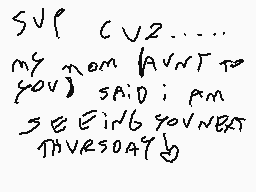 SUP CUZ.....
MY MOM (AUNT TO
YOU) SAiD i AM
SEEING YOU NEXT
THURSDAY